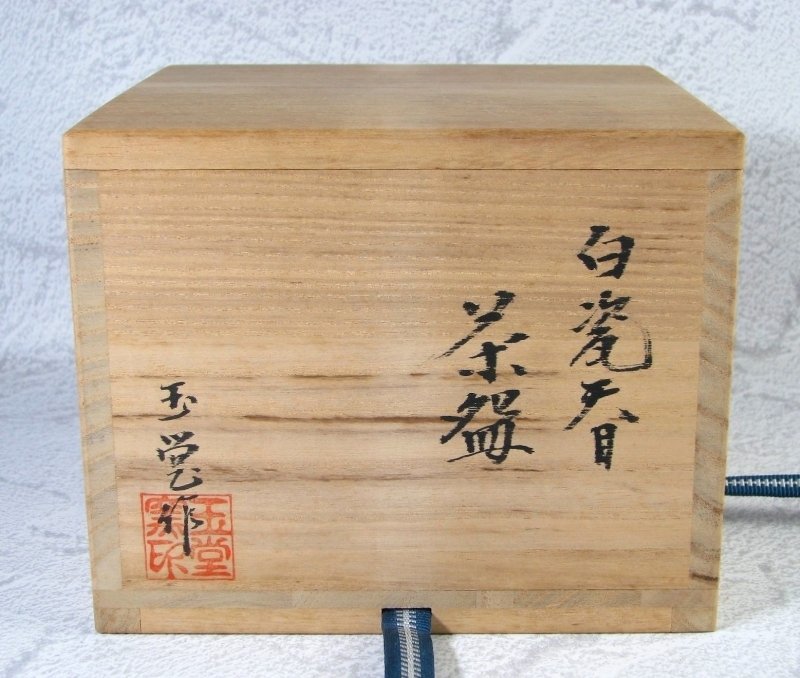 白瓷天目
茶盌
玉堂作
玉堂窯印